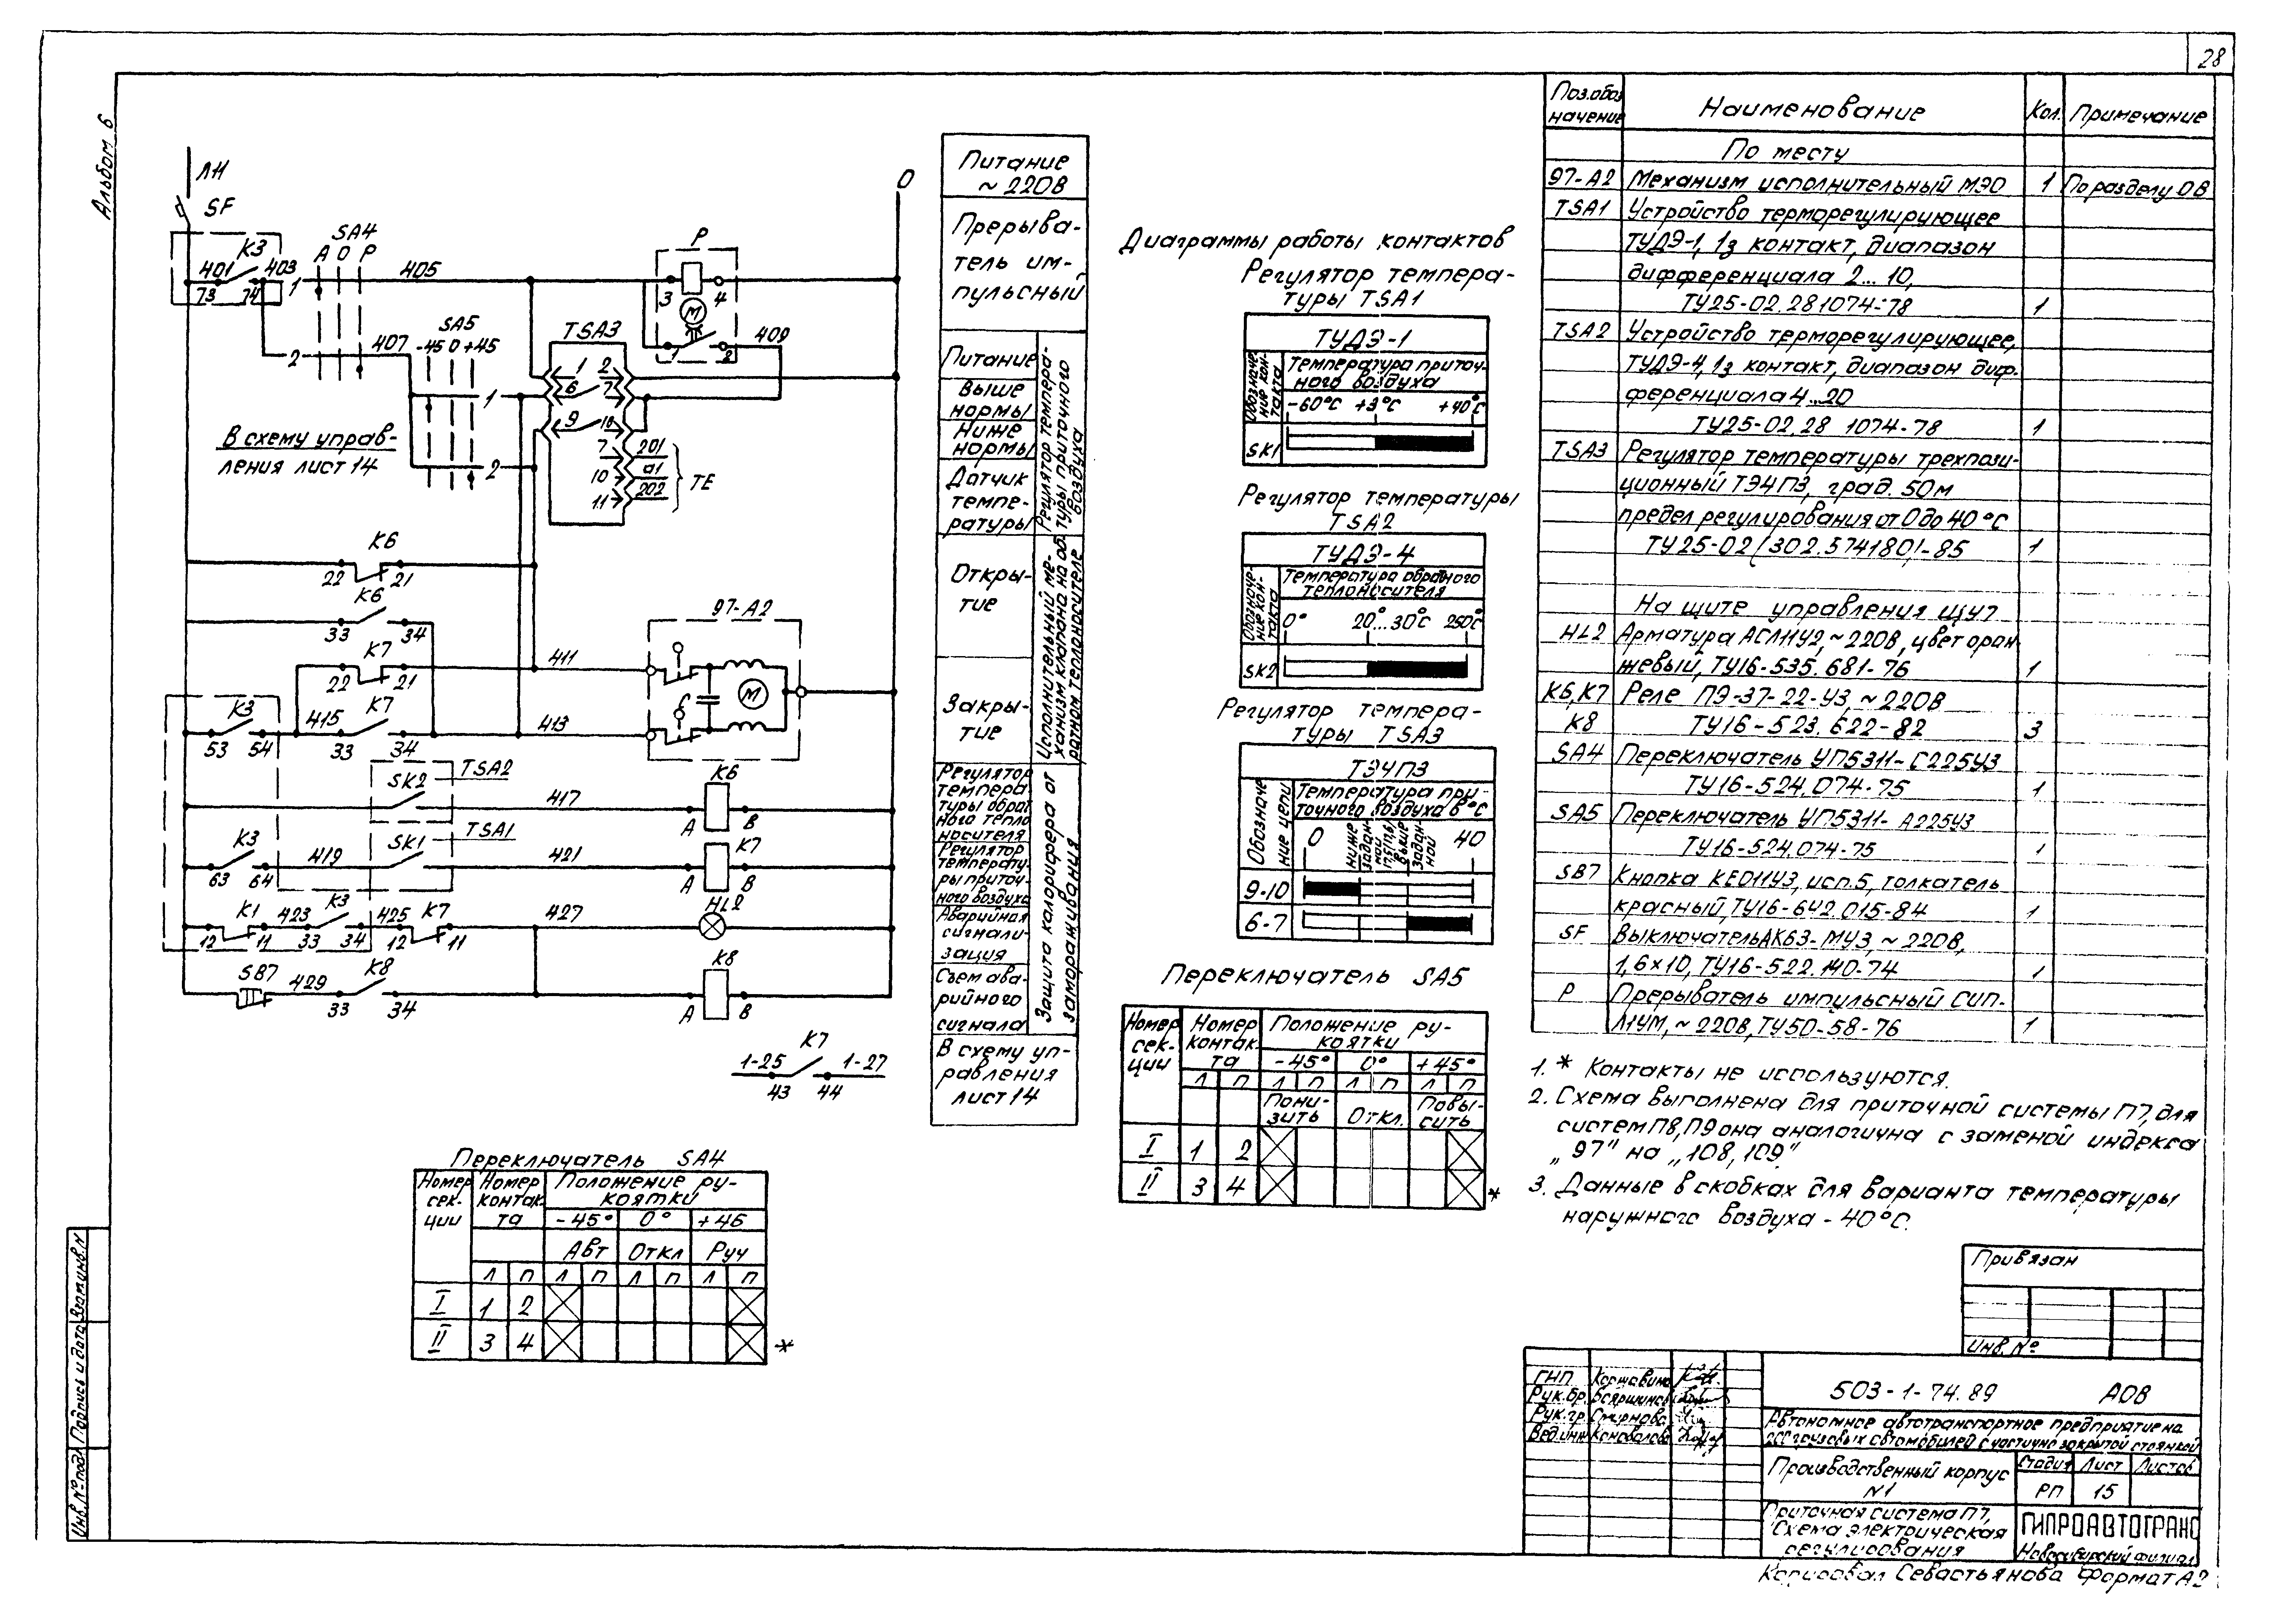 28
Альбом 6
ЛН
SF
К3
401
403
73
74
SA4
А О Р
1
405
2
407
SA5
-45 0 +45
1
2
В схему управ-
ления лист 14
TSA3
1 2
6 7
9 10
7 201
10 а1
11 202
ТЕ
Р
3 4
М
1 2
409
О
К6
22 21
К6
33 34
К7
22 21
411
97-А2
М
С
К3
53 54
415
К7
33 34
413
SK2
TSA2
417
К6
А В
К3
63 64
419
SK1
TSA1
421
К7
А В
К1
12 11
423
К3
33 34
425
К7
12 11
427
HL2
SB7
429
К8
33 34
К8
А В
К7
1-25 1-27
43 44
Питание
~ 220В
Прерыва-
тель им-
пульсный
Питание
Выше
нормы
Ниже
нормы
Датчик
темпе-
ратуры
Регулятор темпера-
туры приточного
воздуха
Откры-
тие
Закры-
тие
Исполнительный ме-
ханизм клапана на об-
ратном теплоносителе
Регулятор
темпера
туры обрат
ного тепло
носителя
Регулятор
температу-
ры приточ-
ного воздуха
Аварийная
сигнали-
зация
Съем ава-
рийного
сигнала
Защита калорифера от
замораживания
В схему уп-
равления
лист 14
Диаграммы работы контактов
Регулятор темпера-
туры TSA1
ТУДЭ-1
Обозначе
ние кон-
такта
Температура приточ-
ного воздуха
-60°С +3°С +40°С
SK1
Регулятор температуры
TSA2
ТУДЭ-4
Обозначе-
ние кон-
такта
Температура обратного
теплоносителя
0° 20°...30°С 250°С
SK2
Регулятор темпера-
туры TSA3
ТЭ4ПЗ
Обозначе
ние цепи
Температура при-
точного воздуха в °С
0
ниже
задан-
ной
выше
задан-
ной
40
9-10
6-7
Переключатель SA5
Номер
сек-
ции
Номер
контак-
та
Положение ру-
коятки
-45° 0° +45°
Л П Л П Л П Л П
Пони-
зить
Откл.
Повы-
сить
I 1 2
II 3 4
*
Переключатель SA4
Номер
сек-
ции
Номер
контак-
та
Положение ру-
коятки
-45° 0° +46
Авт Откл Руч
Л П Л П Л П Л П
I 1 2
II 3 4
*
Поз.обоз
начение Наименование Кол. Примечание
По месту
97-А2 Механизм исполнительный МЭО 1 По разделу ОВ
TSA1 Устройство терморегулирующее
ТУДЭ-1, 1з контакт, диапазон
дифференциала 2...10,
ТУ25-02.281074-78 1
TSA2 Устройство терморегулирующее,
ТУДЭ-4, 1з контакт, диапазон диф-
ференциала 4...20
ТУ25-02.28 1074-78 1
TSA3 Регулятор температуры трехпози-
ционный ТЭ4ПЗ, град. 50м
предел регулирования от 0 до 40°С
ТУ25-02/302.5741801-85 1
На щите управления ЩУ7
HL2 Арматура АСЛ11У2, ~220В, цвет оран
жевый, ТУ16-535.681-76 1
К6,К7 Реле ПЭ-37-22-У3, ~220В
К8 ТУ16-523.622-82 3
SA4 Переключатель УП5311-С225У3
ТУ16-524.074-75 1
SA5 Переключатель УП5311-А225У3
ТУ16-524.074-75 1
SB7 Кнопка КЕ011У3, исп.5, толкатель
красный, ТУ16-642.015-84 1
SF Выключатель АК63-МУ3, ~220В,
1,6х10, ТУ16-522.140-74 1
Р Прерыватель импульсный СИП-
Л1УМ, ~220В, ТУ50-58-76 1
1. * Контакты не используются.
2. Схема выполнена для приточной системы П7, для
систем П8, П9 она аналогична с заменой индекса
„97" на „108, 109"
3. Данные в скобках для варианта температуры
наружного воздуха -40°С.
Привязан
Инв. №
ГНП
Рук.бр.
Рук.гр. Смирнова
Вед.инж Коновалова
503-1-74.89 АОВ
Автономное автотранспортное предприятие на
200 грузовых автомобилей с частично закрытой стоянкой
Производственный корпус
№1
Стадия Лист Листов
РП 15
Приточная система П7,
Схема электрическая
регулирования
ГИПРОАВТОТРАНС
Новосибирский филиал
Копировал Севастьянова Формат А2
Инв. № подл Подпись и дата Взам.инв.№